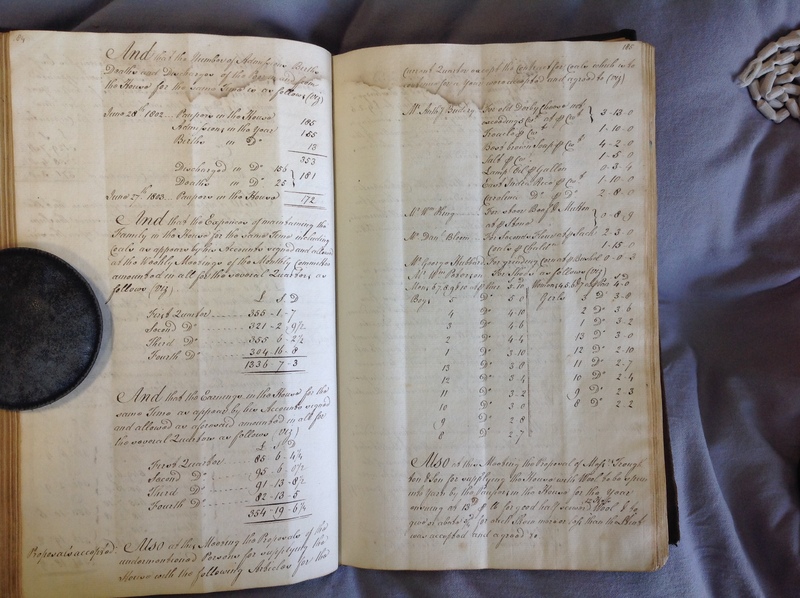 And that the Number of Admissions Births
Deaths and Discharges of the
the House for the same Time is as follows (Viz)
June 28th 1802.. Paupers in the House 185
Admissions in the Year 155
Births in Do 13
353
Discharged in Do 156
Deaths in Do 25 } 181
June 27th 1803.. Paupers in the House 172
And that the Expences of maintaining the
Family in the House for the same Time including
Coals as appears by his Accounts signed and allowed
at the Weekly Meetings of the Monthly Committee
amounted in all for the several Quarters as
follows (Viz)
£ S D
First Quarter 355-1-7
Second Do 321-2-9½
Third Do 355-6-2½
Fourth Do 304-16-8
1336-7-3
And that the Earnings in the House for the
same Time as appears by his Accounts signed
and allowed as aforesaid amounted in all for
the several Quarters as follows (Viz)
£ S D
First Quarter 85-6-4¾
Second Do 95-6-
Third Do 91-13-8½
Fourth Do 82-13-5
354-19-6¼
Proposals accepted Also at this Meeting the Proposals of the
undermentioned Persons for supplying the
House with the following Articles for the
185
Current Quarter except the Contract for Coals which is to
were accepted and agreed to (Viz)
For old Derby Cheese not
exceeding Cwt at p Ct } 3-13-0
Treacle p Ct 1-10-0
Best brown Soap p Ct 4-2-0
Salt p Ct 1-5-0
Lamp Oil p Gallon 0-3-4
East India Rice p Ct 1-10-0
Carolina Do p Do 2-8-0
Mr Wm King For Stone Beef & Mutton
at p Stone
Mr Danl Bloom For Seconds Flour at p Sack 2-3-0
Coals p Chaldn 1-15-0
Mr George Hubbard For grinding Corn at p Bushel 0-0-3
Mr Wm Paterson For Shoes as follows (Viz)
S D
Mens 6 7 8 9 & 10 at p Pair 5-10 Womens 4 5 6 7 at p Pair 4-0
Boys 5 Do 5-0 Girls 3 Do 3-8
4 Do 4-10 2 Do 3-6
3 Do 4-6 1 Do 3-2
2 Do 4-4 13 Do 3-0
1 Do 3-10 12 Do 2-10
13 Do 3-8 11 Do 2-7
12 Do 3-4 10 Do 2-4
11 Do 3-2 9 Do 2-3
10 Do 3-0 8 Do 2-2
9 Do 2-8
8 Do 2-7
Also at this Meeting the Proposal of Messrs
& Son for supplying the House with Wool to be spun
into Yarn by the Paupers in the House for the Year
ensuing at p lb for good half second Wool
or above for each Skein more or less than
was accepted and agreed to